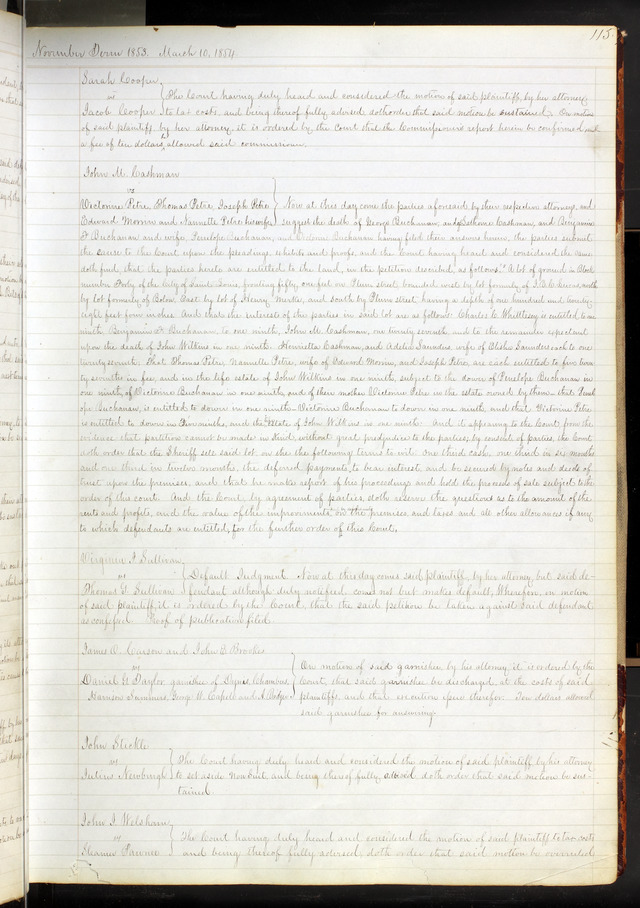 115.
November Term 1853. March 10, 1854
Sarah Cooper
vs
The Court having duly heard and considered the motion of said plaintiff, by her attorney
Jacob Cooper
to tax costs, and being thereof fully advised doth order that said motion be sustained. On motion
of said plaintiff by her attorney, it is ordered by the Court that the Commissioner's report herein be confirmed and
a fee of ten dollars allowed said commissioner.
John M. Cashman
vs
Victorine Petre, Thomas Petre, Joseph Petre
Now at this day come the parties aforesaid by their respective attorneys, and
Edward Morrin and Nannette Petre his wife
suggest the death of George Buchanan, and Cashman, and Benjamin
F Buchanan and wife, Penelope Buchanan, and Victorine Buchanan having filed their answers herein, the parties submit
the cause to the Court upon the pleadings, exhibits and proofs, and the Court having heard and considered the same
doth find, that the parties hereto are entitled to the land, in the petition described, as follows: "A lot of ground in Block
number Forty of the City of Saint Louis, fronting fifty one feet on Plum street, bounded west by lot formerly of north
by lot formerly of Colon, East by lot of Henry and south by Plum street, having a depth of one hundred and twenty
eight feet four inches. And that the interests of the parties in said lot are as follows: Charles C. Whittlesey is entitled to one
ninth, Benjamin F Buchanan, to one ninth, John M. Cashman, one twenty seventh, and to the remainder expectant
upon the death of John Wilkins in one ninth. Henrietta Cashman, and Adelia Saunders wife of Elisha Saunders each to one
twenty seventh. That Thomas Petre, Nannette Petre, wife of Edward Morrin, and Joseph Petre, are each entitled to five
ty sevenths in fee, and in the life estate of John Wilkins in one ninth, subject to the dower of Penelope Buchanan in
one ninth, of Victorine Buchanan in one ninth, and of their mother Victorine Petre in the estate owned by them. that Penel
ope Buchanan, is entitled to dower in one ninth. Victorine Buchanan to dower in one ninth and that Victorine Petre
is entitled to dower in Five ninths, and the Estate of John Wilkins in one ninth. And it appearing to the Court from the
evidence that partition cannot be made in kind, without great prejudice to the parties, by consent of parties, the Court
doth order that the Sheriff sell said lot on the following terms to wit: One third cash, one third in six months
and one third in twelve months, the deferred payments to bear interest, and be secured by notes and deeds of
trust upon the premises, and that he makes report of his proceedings and hold the proceeds of sale subject to the
order of this court. And the Court, by agreement of parties, doth reserve the questions as to the amount of the
rents and profits, and the value of the improvements on the premises, and taxes and all other allowances if any
to which defendants are entitled, for the further order of this Court.
Virginia F Sullivan
vs
Default Judgment. Now at this day comes said plaintiff, by her attorney, but said de-
Thomas F. Sullivan
fendant although duly notified, comes not but makes default; Wherefore, on motion
of said plaintiff, it is ordered by the Court, that the said petition be taken against said defendant,
as confessed. Proof of publication filed.
James O. Carson and John B Brookes
vs
On motion of said garnishee, by his attorney, it is ordered by the
Daniel G Taylor garnishee of Chambers
Court, that said garnishee be discharged, at the costs of said
Harrison George W. Capell and A. Dodge
plaintiffs, and that execution issue therefor. Ten dollars allowed
said garnishee for answering.
John Stickle
vs
The Court having duly heard and considered the motion of said plaintiff by his attorney
Julius Newbirgh
to set aside Non Suit, and being thereof fully advised, doth order that said motion be sus-
tained.
John F Welshour
vs
The Court having duly heard and considered the motion of said plaintiff to tax costs
Steamer Pawnee
and being thereof fully advised, doth order that said motion be overruled.